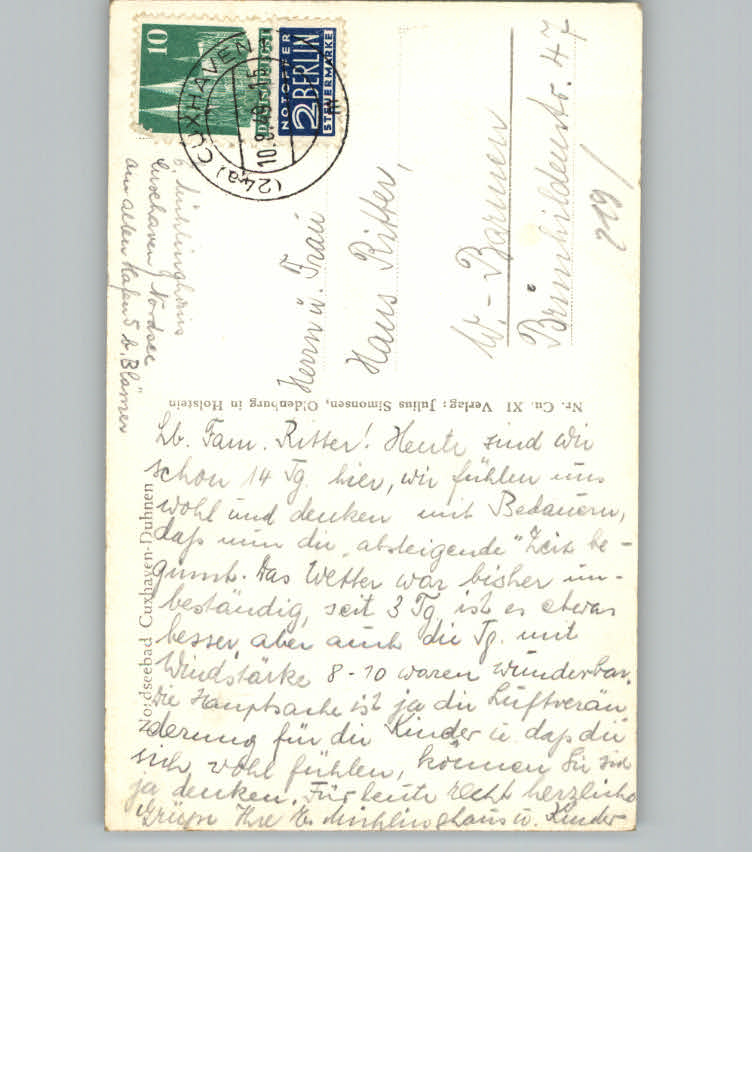 10
DEUTSCHE POST
NOTOPFER
2 BERLIN
STEUERMARKE
(24a) CUXHAVEN
10.8.49
Mühlinghaus
Cuxhaven, Nordsee
am alten Hafen 5 b. "Blamer
Herrn u. Frau
Hans Ritter,
W.-Barmen
Brünhildenstr. 47
219/
Nr. Cu. XI Verlag: Julius Simonsen, Oldenburg in Holstein
Nordseebad Cuxhaven-Duhnen
Lb. Fam. Ritter! Heute sind wir
schon 14 Tg. hier, wir fühlen uns
wohl und denken mit Bedauern,
daß nun die "absteigende" Zeit be-
ginnt. Das Wetter war bisher un-
beständig, seit 3 Tg. ist es etwas
besser, aber auch die Tg. mit
Windstärke 8-10 waren wunderbar.
Die Hauptsache ist ja die Luftverän
derung für die Kinder u. daß die
sich wohl fühlen, können Sie sich
ja denken. Für heute recht herzliche
Grüße Ihre Mühlinghaus u. Kinder